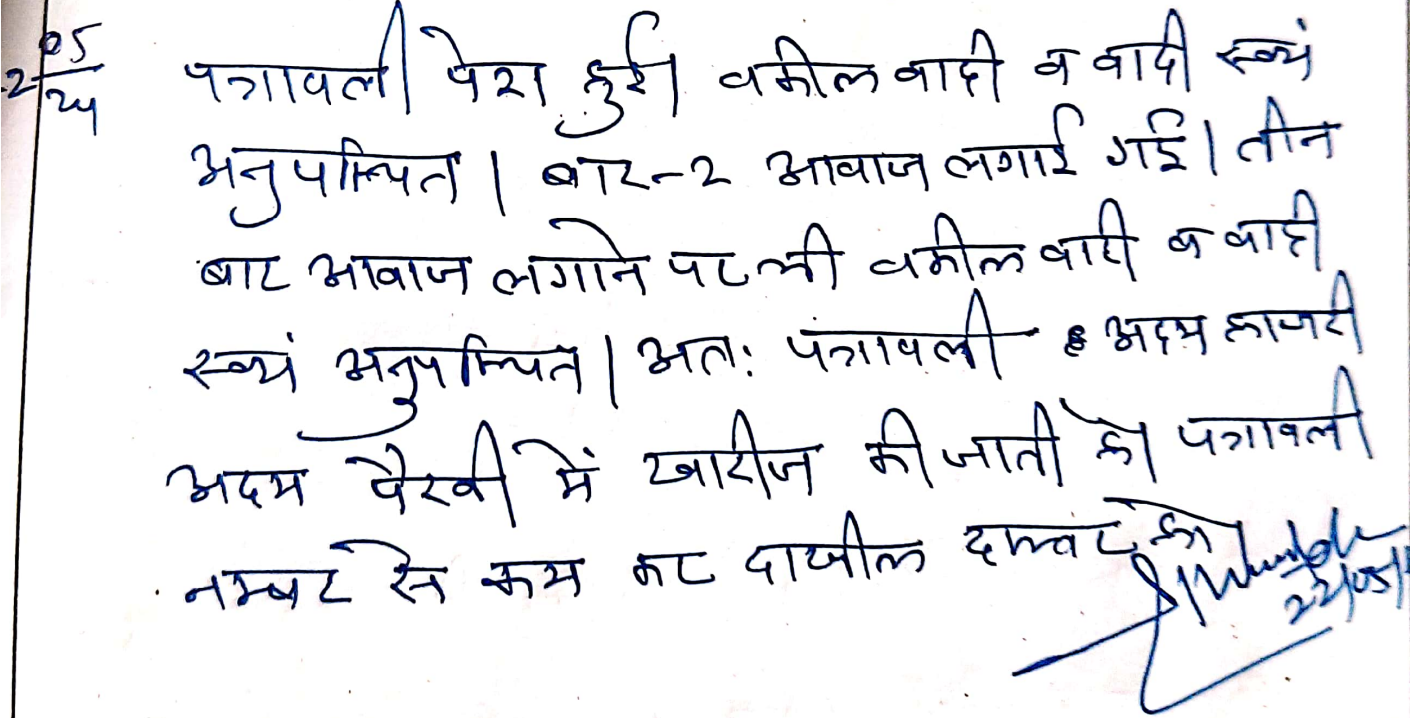 05
2
24
पत्रावली पेश हुई। वकील वादी व वादी स्वयं
अनुपस्थित। बार-2 आवाज लगाई गई। तीन
बार आवाज लगाने पर भी वकील वादी व वादी
स्वयं अनुपस्थित। अतः पंत्रावली अदम हाजरी
अदम पैरवी में खारीज की जाती है। पत्रावली
नम्बर से कम कर दाखील दफ्तर हो।
22/05/